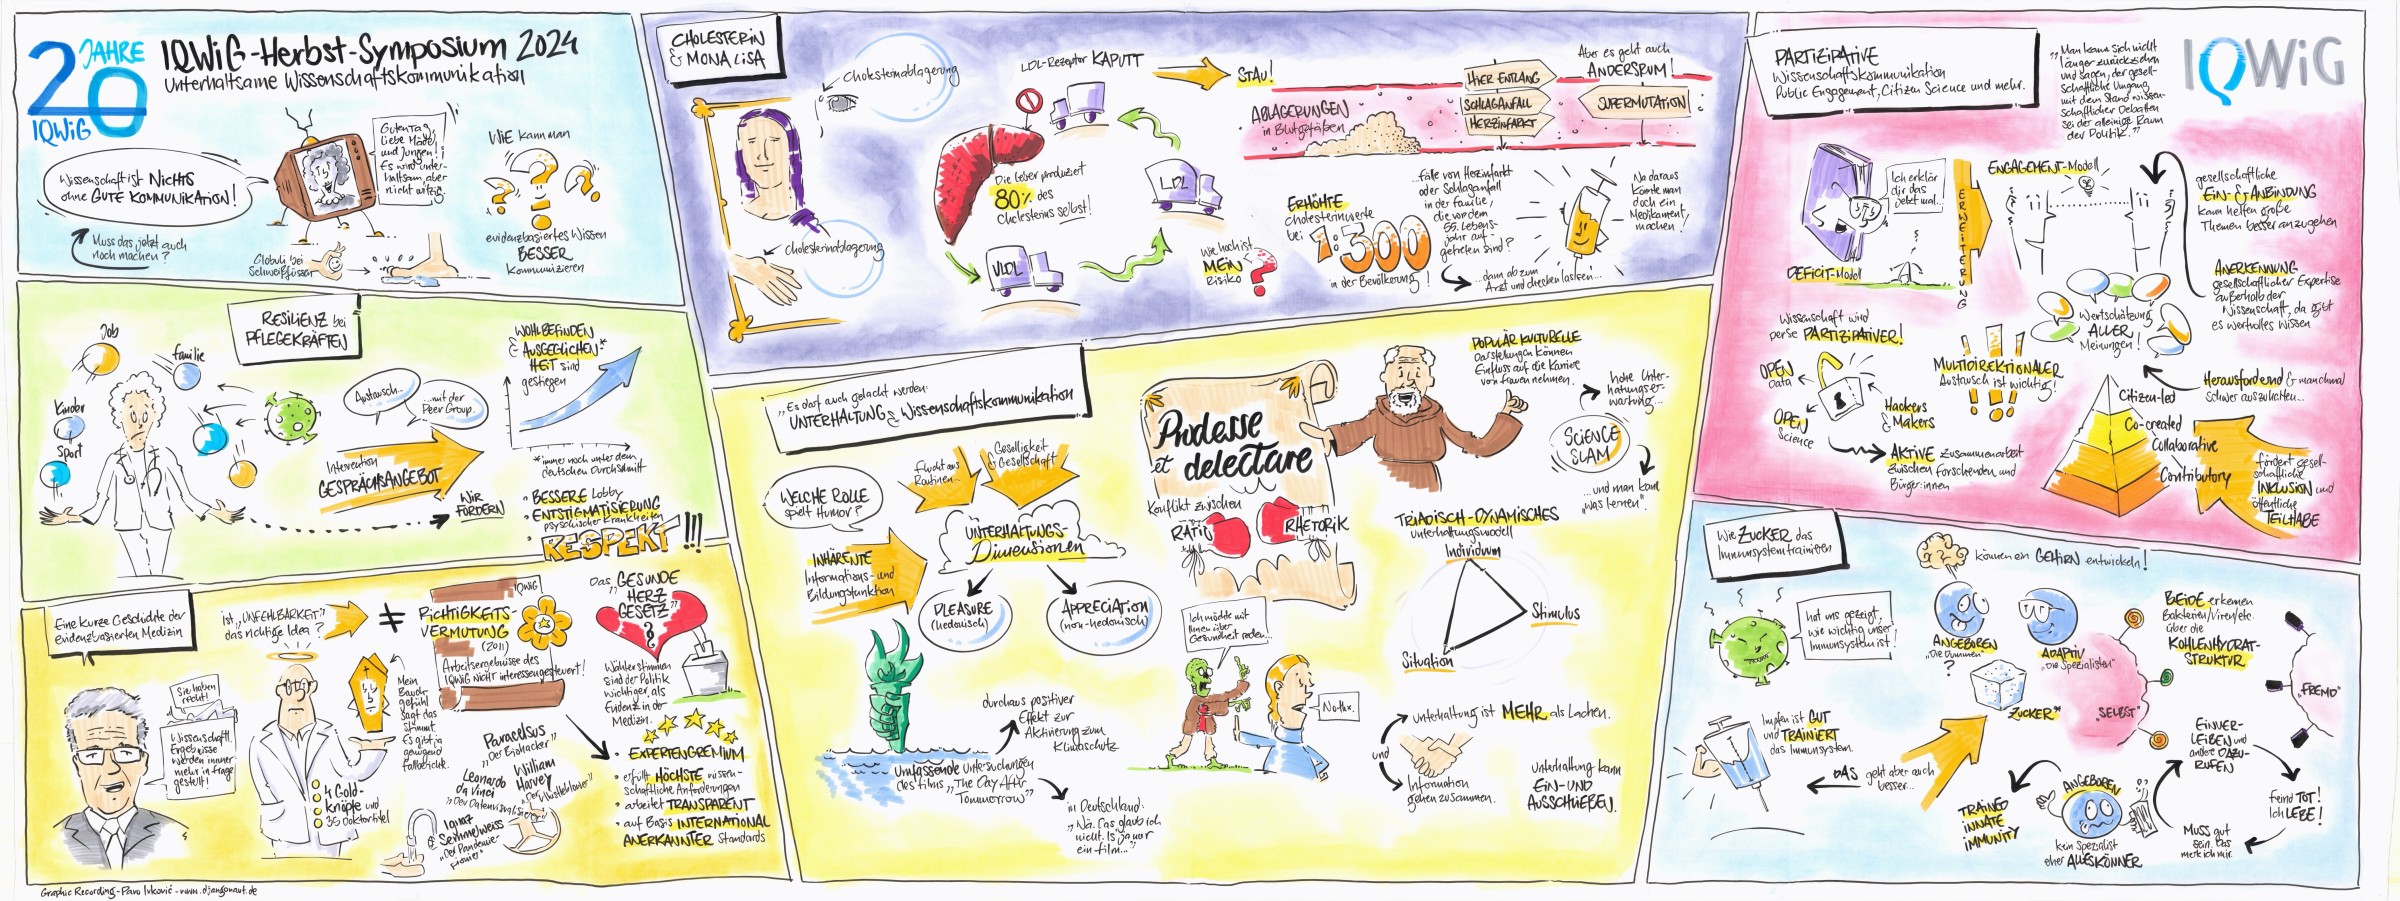 20 JAHRE
IQWiG
IQWiG-Herbst-Symposium 2024
Unterhaltsame Wissenschaftskommunikation
Wissenschaft ist NICHTS
ohne GUTE KOMMUNIKATION!
Muss das jetzt auch
noch machen?
Guten Tag,
liebe Mädel
und Jungen!
Es wird unter-
haltsam, aber
nicht witzig.
Globuli bei
Schweißfüssen
WIE kann man
evidenzbasiertes Wissen
BESSER
kommunizieren
RESILIENZ bei
PFLEGEKRÄFTEN
Job
Familie
Kinder
Sport
Austausch...
...mit der
Peer Group.
Intervention
GESPRÄCHSANGEBOT
WOHLBEFINDEN
& AUSGEGLICHEN-*
HEIT sind
gestiegen
*immer noch unter dem
deutschen Durchschnitt
WIR
FÖRDERN
• BESSERE Lobby
• ENTSTIGMATISIERUNG
psychischer Krankheiten
• RESPEKT!!!
Eine kurze Geschichte der
evidenzbasierten Medizin
Sie haben
recht!
Wissenschaftl.
Ergebnisse
werden immer
mehr in Frage
gestellt!
ist „UNFEHLBARKEIT"
das richtige Idea?
≠
4 Gold-
knöpfe und
35 Doktortitel
Mein
Bauch-
gefühl
sagt das
stimmt.
Es gibt ja
genügend
Fallberichte.
IQWiG
RICHTIGKEITS-
VERMUTUNG
(2011)
Arbeitsergebnisse des
IQWiG NICHT interessengesteuert!
Paracelsus
„Der Biohacker"
Leonardo
da Vinci
„Der Datenvisualisierer"
William
Harvey
Ignaz
Semmelweiss
„Der Pandemie-
Pionier"
Das „GESUNDE
HERZ
GESETZ"
Wählerstimmen
sind der Politik
wichtiger, als
Evidenz in der
Medizin.
• EXPERTENGREMIUM
• erfüllt HÖCHSTE wissen-
schaftliche Anforderungen
• arbeitet TRANSPARENT
• auf Basis INTERNATIONAL
ANERKANNTER Standards
Graphic Recording - Pavo Ivković - www.djangonaut.de
CHOLESTERIN
& MONA LISA
Cholesterinablagerung
Cholesterinablagerung
LDL-Rezeptor KAPUTT
STAU!
Die Leber produziert
80% des
Cholesterins selbst!
LDL
VLDL
ABLAGERUNGEN
in Blutgefäßen
HIER ENTLANG
SCHLAGANFALL
HERZINFARKT
Aber es geht auch
ANDERSRUM!
SUPERMUTATION
Wie hoch ist
MEIN
Risiko
?
ERHÖHTE
Cholesterinwerte
bei
1:300
in der Bevölkerung!
...Fälle von Herzinfarkt
oder Schlaganfall
in der Familie,
die vor dem
55. Lebens-
jahr auf-
getreten sind?
...dann ab zum
Arzt und checken lassen...
Na daraus
könnte man
doch ein
Medikament
machen!
„Es darf auch gelacht werden:
UNTERHALTUNG & Wissenschaftskommunikation
WELCHE ROLLE
spielt Humor?
Flucht aus
Routinen...
Geselligkeit
& Gesellschaft
INHÄRENTE
Informations- und
Bildungsfunktion
UNTERHALTUNGS-
Dimensionen
PLEASURE
(hedonisch)
APPRECIATION
(non-hedonisch)
durchaus positiver
Effekt zur
Aktivierung zum
Klimaschutz
Umfassende Untersuchungen
des Films „The Day After
Tommorrow"
in Deutschland:
„Nä. Das glaub ich
nicht. Is ja nur
ein Film..."
Prodesse
et delectare
Konflikt zwischen
RATIO
RHETORIK
Ich möchte mit
Ihnen über
Gesundheit reden...
No thx.
POPULÄR KULTURELLE
Darstellungen können
Einfluss auf die Karriere
von Frauen nehmen.
hohe Unter-
haltungser-
wartung...
SCIENCE
SLAM
...und man kann
„was lernen".
TRIADISCH-DYNAMISCHES
Unterhaltungsmodell
Individuum
Stimulus
Situation
Unterhaltung ist MEHR als Lachen.
und
Information
gehen zusammen.
Unterhaltung kann
EIN- UND
AUSSCHLIEßEN.
PARTIZIPATIVE
Wissenschaftskommunikation
Public Engagement, Citizen Science und mehr.
„Man kann sich nicht
länger zurückziehen
und sagen, der gesell-
schaftliche Umgang
mit dem Stand wissen-
schaftlicher Debatten
sei der alleinige Raum
der Politik."
IQWiG
Ich erklär
dir das
jetzt mal...
DEFICIT-Modell
ERWEITERUNG
ENGAGEMENT-Modell
gesellschaftliche
EIN- & ANBINDUNG
kann helfen große
Themen besser anzugehen
ANERKENNUNG
gesellschaftlicher Expertise
außerhalb der
Wissenschaft, da gibt
es wertvolles Wissen
Wertschätzung
ALLER
Meinungen!
Herausfordernd & manchmal
schwer auszuhalten...
Wissenschaft wird
per se PARTIZIPATIVER!
OPEN
Data
OPEN
Science
Hackers
& Makers
AKTIVE Zusammenarbeit
zwischen Forschenden und
Bürger:innen
MULTIDIREKTIONALER
Austausch ist wichtig!
Citizen-led
Co-created
Collaborative
Contributory
fördert gesell-
schaftliche
INKLUSION und
öffentliche
TEILHABE
Wie ZUCKER das
Immunsystem trainieren
können ein GEHIRN entwickeln!
hat uns gezeigt,
wie wichtig unser
Immunsystem ist!
ANGEBOREN
„Die Dummen"
?
ADAPTIV
„Die Spezialisten"
ZUCKER"
BEIDE erkennen
Bakterien/Viren/etc.
über die
KOHLENHYDRAT-
STRUKTUR
„SELBST"
„FREMD"
Impfen ist GUT
und TRAINIERT
das Immunsystem.
DAS geht aber auch
besser...
TRAINED
INNATE
IMMUNITY
ANGEBOREN
kein Spezialist
eher ALLESKÖNNER
EINVER-
LEIBEN und
andere DAZU-
RUFEN
Feind TOT!
Ich LEBE!
Muss gut
sein. Das
merk ich mir.